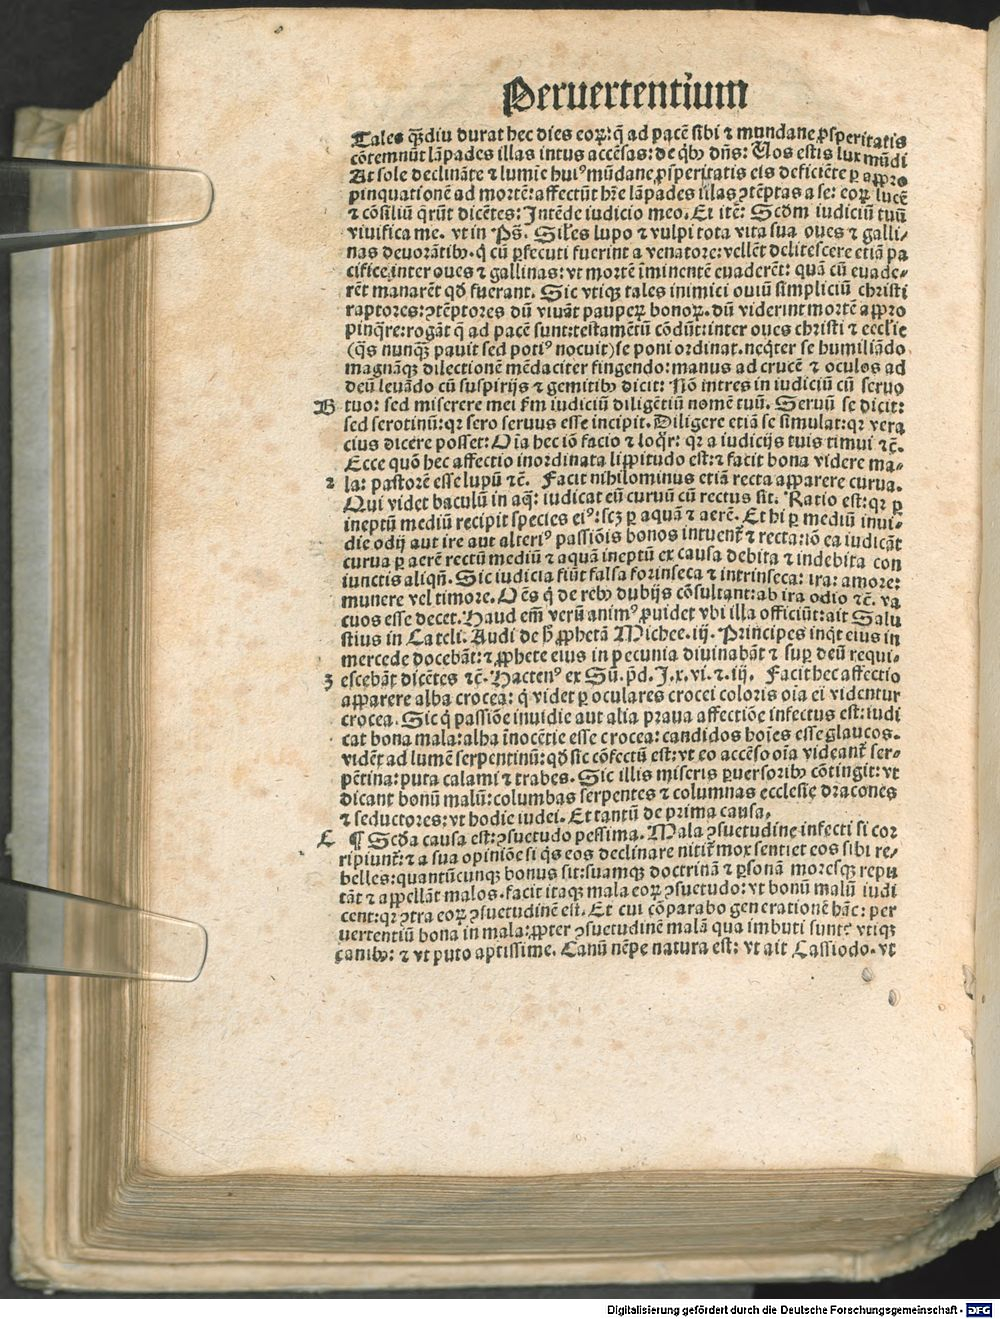 Peruertentium
Tales qȝ̄diu durat hec dies eoꝝ: q̄ ad pacē sibi ⁊ mundane ꝓsperitatis
cōtemnūt lāpades illas intus accēsas: de qbꝰ dn̄s: Uos estis lux mūdi
At sole declināte ⁊ lumīe huiꝰ mūdane ꝓsperitatis eis deficiēte ꝑ appro
pinquationē ad mortē: affectūt hr̄e lāpades illas ꝯtēptas a se: eoꝝ lucē
⁊ cōsiliū q̄rūt dicētes: Intēde iudicio meo. Et itē: Scd̄m iudiciū tuū
viuifica me. vt in Ps̄. Siles lupo ⁊ vulpi tota vita sua oues ⁊ galli-
nas deuorātibꝰ. q cū ꝑsecuti fuerint a venatore: vellēt delitescere etiā pa
cifice inter oues ⁊ gallinas: vt mortē īminentē euaderēt: quā cū euade-
rēt manarēt qd̄ fuerant. Sic vtiqȝ tales inimici ouiū simpliciū christi
raptores: ꝯtēptores dū viuāt pauperꝝ bonoꝝ. dū viderint mortē appro
pinq̄re: rogāt q̄ ad pacē sunt: testamētū cōdūt: inter oues christi ⁊ eccl̄ie
(q̄s nunqȝ̄ pauit sed potiꝰ nocuit) se poni ordinat. neqter se humiliādo
magnāqȝ dilectionē mēdaciter fingendo: manus ad crucē ⁊ oculos ad
deū leuādo cū suspirijs ⁊ gemitibꝰ dicit: Nō intres in iudiciū cū seruo
B tuo: sed miserere mei s̄m iudiciū diligētiū nomē tuū. Seruū se dicit:
sed serotinū: qꝛ sero seruus esse incipit. Diligere etiā se simulat: qꝛ vera
cius dicere posset: Oīa hec iō facio ⁊ loq̄r: qꝛ a iudicijs tuis timui ⁊c̄.
Ecce quō hec affectio inordinata lippitudo est: ⁊ facit bona videre ma-
2 la: pastorē esse lupū ⁊c̄. Facit nihilominus etiā recta apparere curua.
Qui videt baculū in aq̄: iudicat eū curuū cū rectus sit. Ratio est: qꝛ ꝑ
ineptū mediū recipit species eiꝰ: scȝ ꝑ aquā ⁊ aerē. Et hi ꝑ mediū inui-
die odij aut ire aut alteriꝰ passiōis bonos intuent̄ ⁊ recta: iō ea iudicāt
curua ꝑ aerē rectū mediū ⁊ aquā ineptū ex causa debita ⁊ indebita con
iunctis aliqn̄. Sic iudicia fiūt falsa forinseca ⁊ intrinseca: ira: amore:
munere vel timore. Oēs q̄ de rebꝰ dubijs cōsultant: ab ira odio ⁊c̄. va
cuos esse decet. Haud em̄ verū animꝰ ꝓuidet vbi illa officiūt: ait Salu
stius in Cateli. Audi de h̄ ꝓphetā Michee. iij. Principes inqt eius in
mercede docebāt: ⁊ ꝓphete eius in pecunia diuinabāt ⁊ sup̄ deū requi-
3 escebāt dicētes ⁊c̄. Hactenꝰ ex Sū. p̄d. J. x. vi. ⁊. iij. Facit hec affectio
apparere alba crocea: q̄ videt ꝑ oculares crocei coloris oīa ei videntur
crocea. Sic q̄ passiōe inuidie aut alia praua affectiōe infectus est: iudi
cat bona mala: alba īnocētie esse crocea: candidos hoīes esse glaucos.
vidēt ad lumē serpentinū: qd̄ sic cōfectū est: vt eo accēso oīa videant̄ ser-
pētina: puta calami ⁊ trabes. Sic illis miseris ꝑuersoribꝰ cōtingit: vt
dicant bonū malū: columbas serpentes ⁊ columnas ecclesie dracones
⁊ seductores: vt hodie iudei. Et tantū de prima causa.
C ¶ Scd̄a causa est: ꝯsuetudo pessima. Mala ꝯsuetudine infecti si cor
ripiunt̄: ⁊ a sua opiniōe si q̄s eos declinare nitit̄ mox sentiet eos sibi re-
belles: quantūcunqȝ bonus sit: suamqȝ doctrinā ⁊ ꝑsonā moresqȝ repu
tāt ⁊ appellāt malos. facit itaqȝ mala eoꝝ ꝯsuetudo: vt bonū malū iudi
cent: qꝛ ꝯtra eoꝝ ꝯsuetudinē est. Et cui cōparabo generationē hāc: per
uertentiū bona in mala: ꝓpter ꝯsuetudinē malā qua imbuti sunt? vtiqȝ
canibꝰ: ⁊ vt puto aptissime. Canū nēpe natura est: vt ait Cassiodo. vt
Digitalisierung gefördert durch die Deutsche Forschungsgemeinschaft - DFG